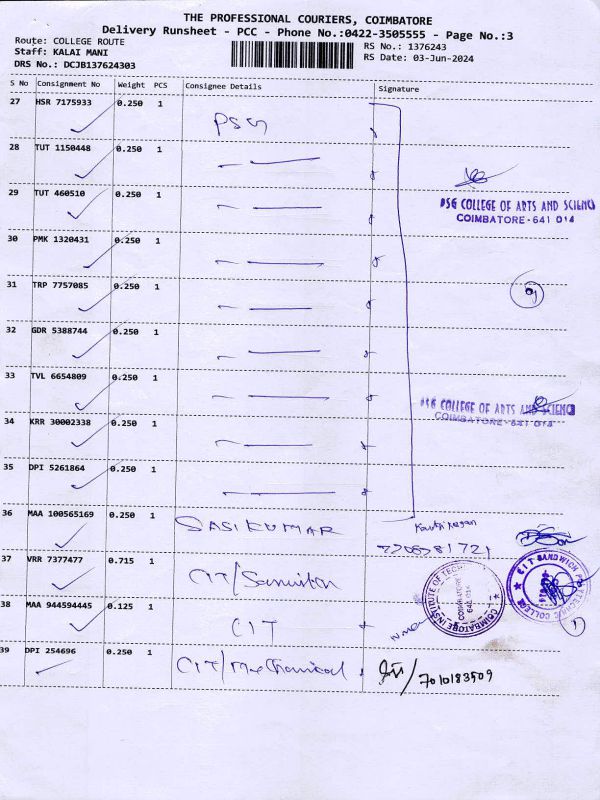 THE PROFESSIONAL COURIERS, COIMBATORE
Delivery Runsheet - PCC - Phone No.:0422-3505555 - Page No.:3
Route: COLLEGE ROUTE
RS No.: 1376243
Staff: KALAI MANI
RS Date: 03-Jun-2024
DRS No.: DCJB137624303
S No Consignment No Weight PCS Consignee Details Signature
27 HSR 7175933 0.250 1 PSG
28 TUT 1150448 0.250 1
29 TUT 460510 0.250 1
PSG COLLEGE OF ARTS AND SCIENC
COIMBATORE-641 014
30 PMK 1320431 0.250 1
31 TRP 7757085 0.250 1
32 GDR 5388744 0.250 1
33 TVL 6654809 0.250 1
PSG COLLEGE OF ARTS AND SCIENC
COIMBATORE-641 014
34 KRR 30002338 0.250 1
35 DPI 5261864 0.250 1
36 MAA 100565169 0.250 1 SASIKUMAR
37 VRR 7377477 0.715 1 CIT/
COIMBATORE INSTITUTE OF TECH
COIMBATORE
641 014
CIT SANDWICH POLYTECHNIC COLLEGE
38 MAA 944594445 0.125 1 CIT
39 DPI 254696 0.250 1 CIT/Mechanical 7010183509